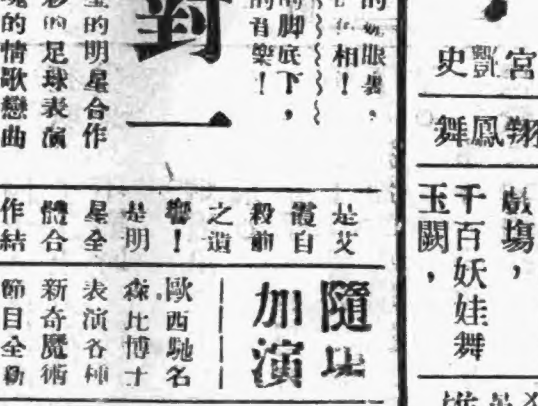 宮豔史
翔鳳舞
戲塲，
千百妖娃舞
玉闕，
眼裏，
色相！
的脚底下，
的音樂！
對一
的明星合作
的足球表演
的情歌戀曲
是艾
霞自
殺前
之遺
響！
是明
星全
體合
作結
隨
加演
歐西馳名
森比博士
表演各種
新奇魔術
節目全新